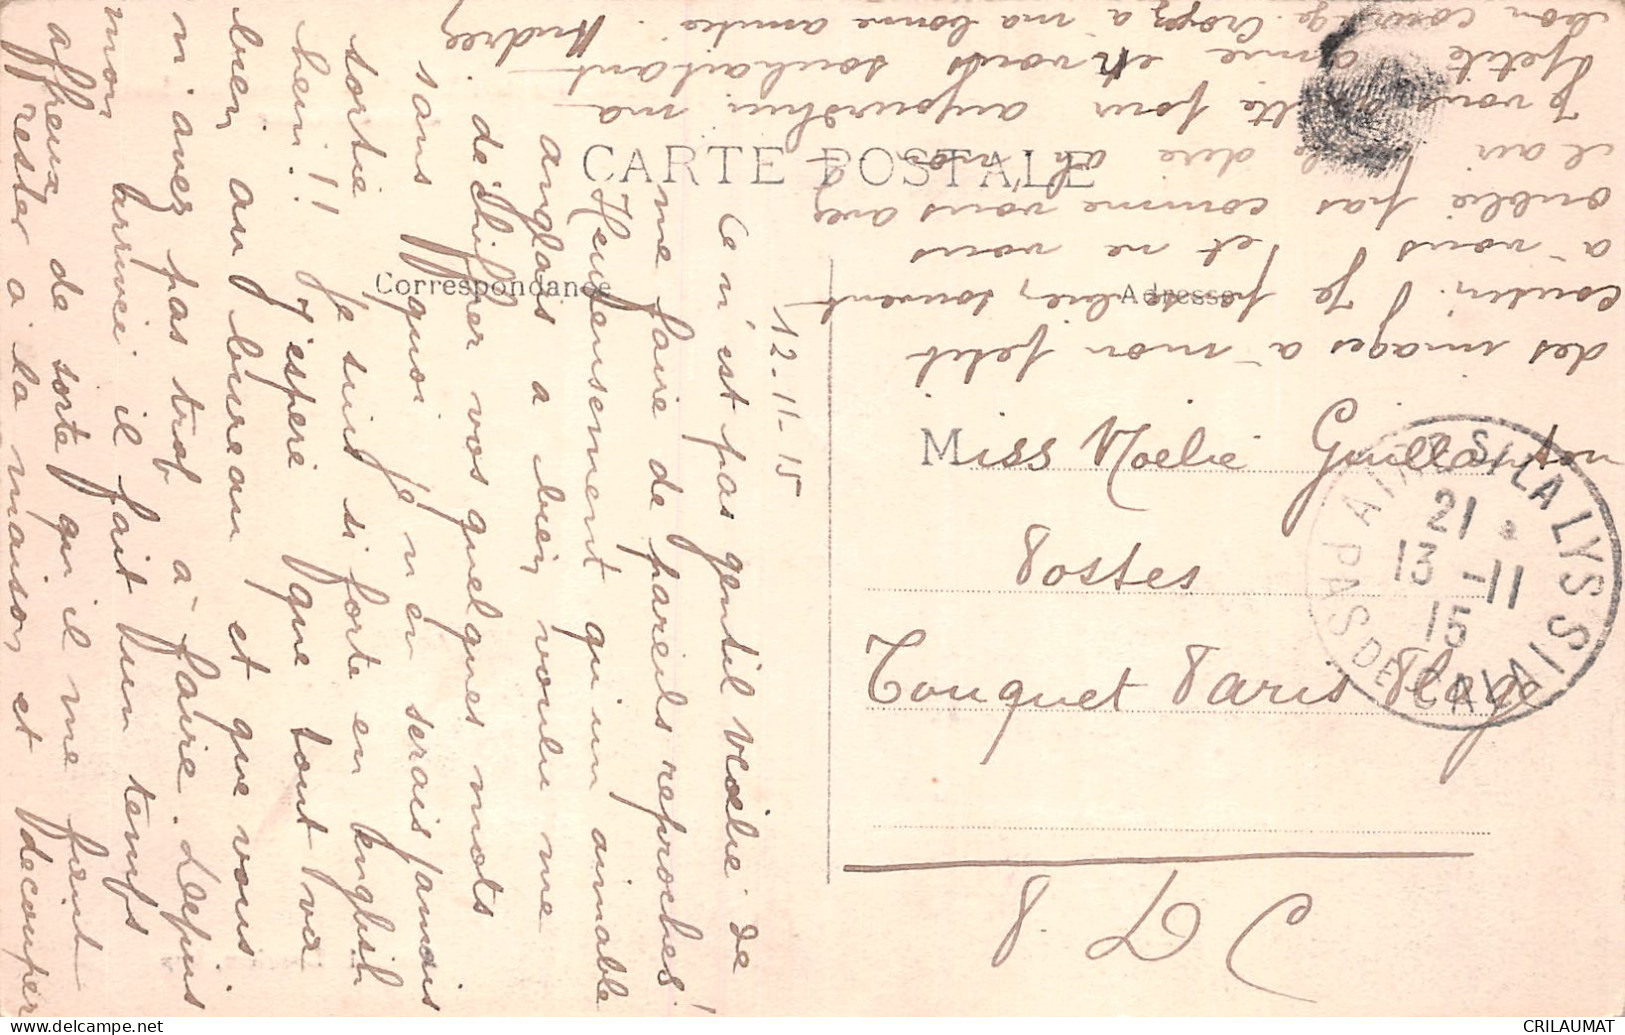 CARTE POSTALE
Correspondance
Adresse
12-11-15
Ce n'est pas gentil vœlie de
me faire de pareils reproches!
Heureusement qu'un aimable
anglais a bien voulu me
déchiffrer vos quelques mots
sans quoi je n'en serais jamais
sortie. Je suis si forte en english
hein!! J'espère que tout va
bien au bureau et que vous
n'avez pas trop à faire. Depuis
mon arrivée il fait un temps
affreux de sorte qu'il me faut
rester à la maison et découper
des images à mon petit
cousin. Je pense souvent
à vous et ne vous
oublie pas comme vous avez
l'air de le dire ah mais
Je vous quitte pour aujourd'hui ma
petite amie en vous souhaitant
bon courage. Croyez à ma bonne amitié. Andrée
Miss Noelie
Postes
Touquet Paris Plage
P. D C
AIRE S/LA LYS
21
13 -11
15
PAS DE CALAIS
CRILAUMAT